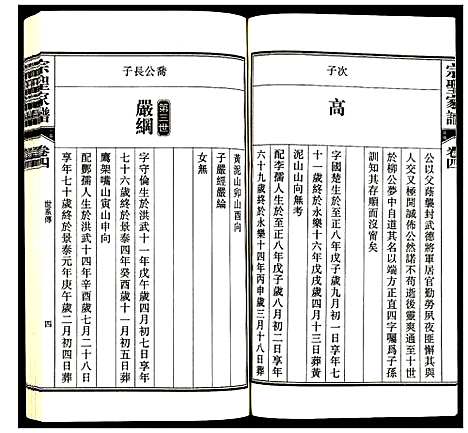 宗聖家譜
卷四
公以父蔭襲封武德將軍居官勤勞夙夜匪懈其與
人交又極開誠佈公然諾不苟逝後公乃通至十世
於柳公夢中自道其名以端方正直四字囑爲子孫
訓知其存順而沒甯矣
次子
高
字國楚生於至正八年戊子歲九月初一日享年七
十一歲終於永樂十六年戊戌歲六月二十四日葬黃
泥山山向無考
配李孺人生於至正八年戊子歲八月初二日享年
六十九歲終於永樂十四年丙申歲三月十八日葬
黃泥山卯山酉向
子嚴經嚴綸
女無
喬公長子
第三世
嚴綱
字守倫生於洪武十一年戊午歲四月初七日享年
七十六歲終於景泰四年癸酉歲十一月初五日葬
鷹架嘴山寅山申向
配鄭孺人生於洪武十四年辛酉歲七月二十八日
享年七十歲終於景泰元年庚午歲二月初四日葬
宗聖家譜
卷四
世系傳
四